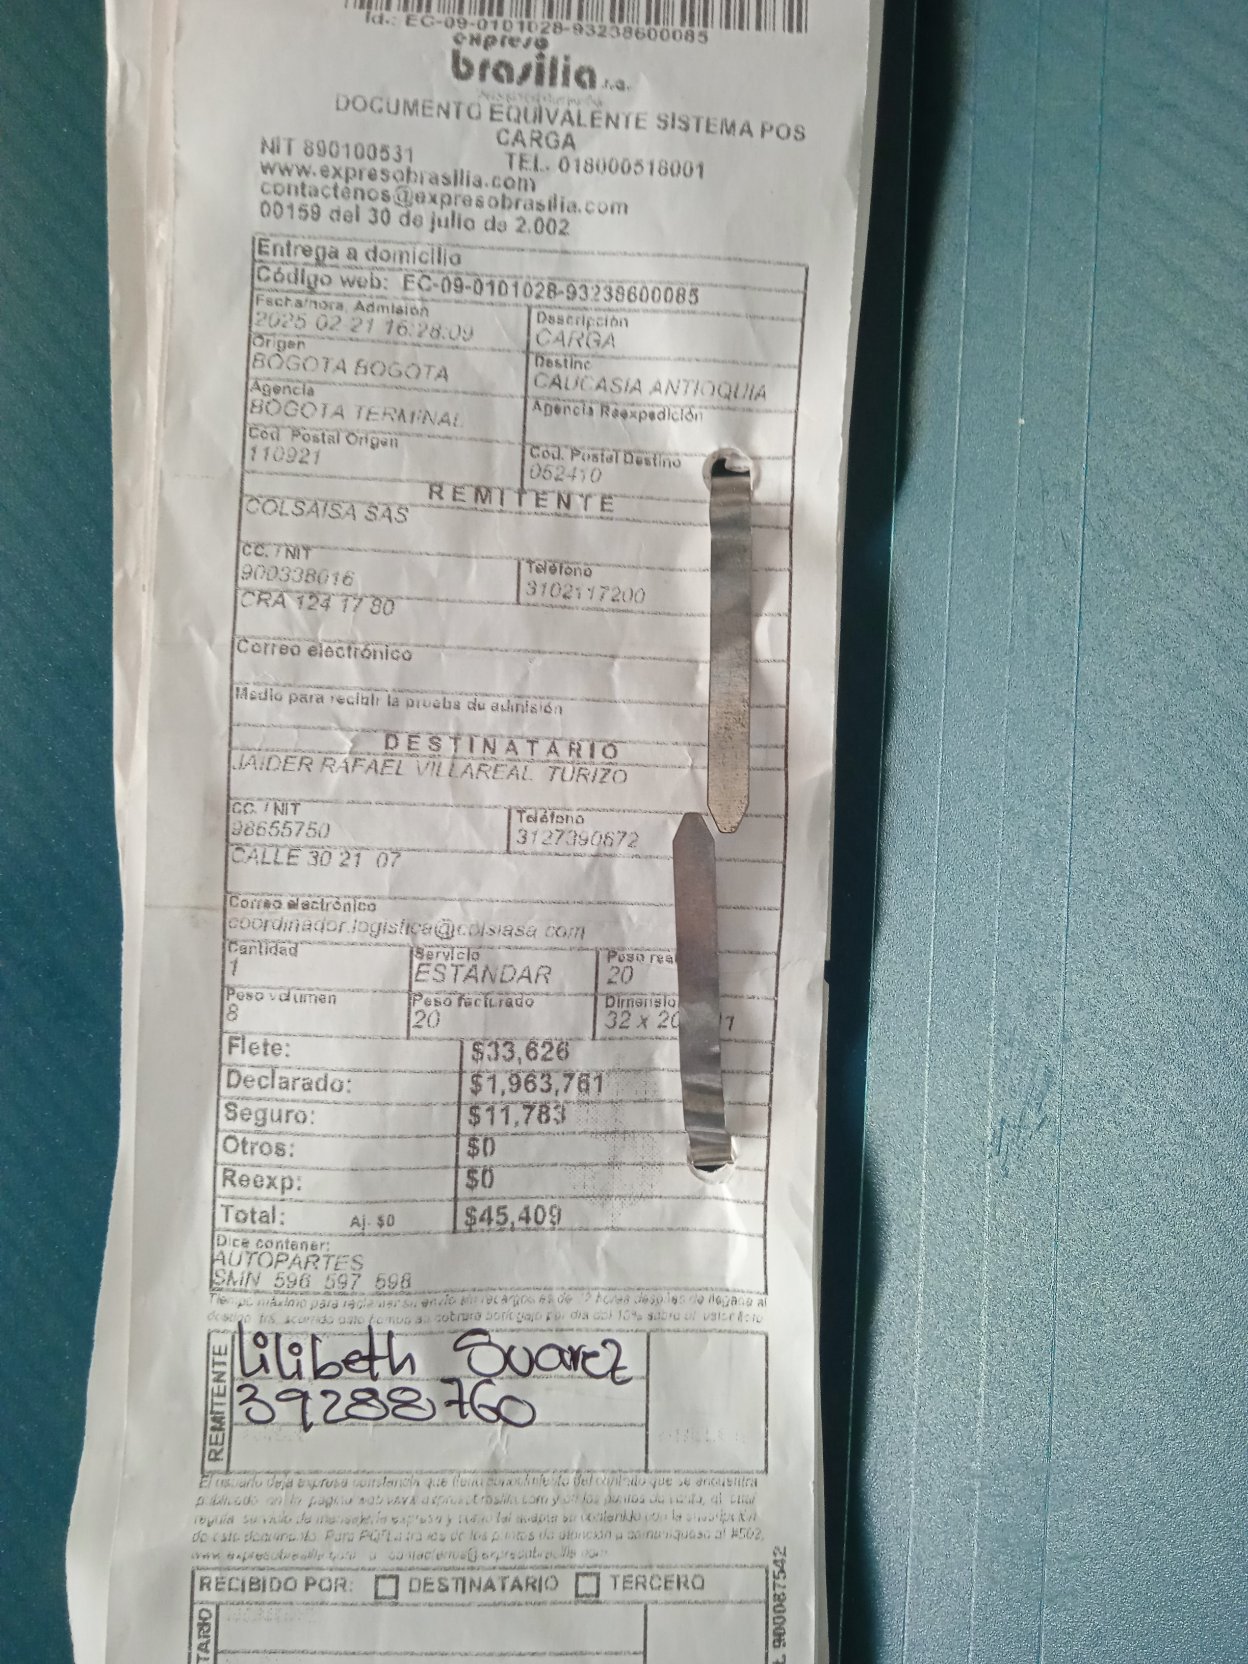 Id.: EC-09-0101028-93238600085
expreso
brasilia s.a.
DOCUMENTO EQUIVALENTE SISTEMA POS
CARGA
NIT 890100531 TEL. 018000518001
www.expresobrasilia.com
contactenos@expresobrasilia.com
00159 del 30 de julio de 2.002
Entrega a domicilio
Código web: EC-09-0101028-93238600085
Fecha/hora Admisión Descripción
2025 02 21 16:28:09 CARGA
Origen Destino
BOGOTA BOGOTA CAUCASIA ANTIOQUIA
Agencia Agencia Reexpedición
BOGOTA TERMINAL
Cod Postal Origen Cod. Postal Destino
110921 052410
REMITENTE
COLSAISA SAS
CC. / NIT Teléfono
900338016 3102117200
CRA 124 17 80
Correo electrónico
Medio para recibir la prueba de admisión
DESTINATARIO
JAIDER RAFAEL VILLAREAL TURIZO
CC. / NIT Teléfono
98655750 3127390672
CALLE 30 21 07
Correo electrónico
coordinador.logistica@colsiasa com
Cantidad Servicio Peso rea
1 ESTANDAR 20
Peso volumen Peso facturado Dimensio
8 20 32 x 20
Flete: $33,626
Declarado: $1,963,761
Seguro: $11,783
Otros: $0
Reexp: $0
Total: Aj. $0 $45,409
Dice contener:
AUTOPARTES
SMN 596 597 598
REMITENTE
Lilibeth Suarez
39288760
El usuario deja expresa constancia que tiene conocimiento del contrato que se encuentra
RECIBIDO POR: DESTINATARIO TERCERO
TARIO
900087542